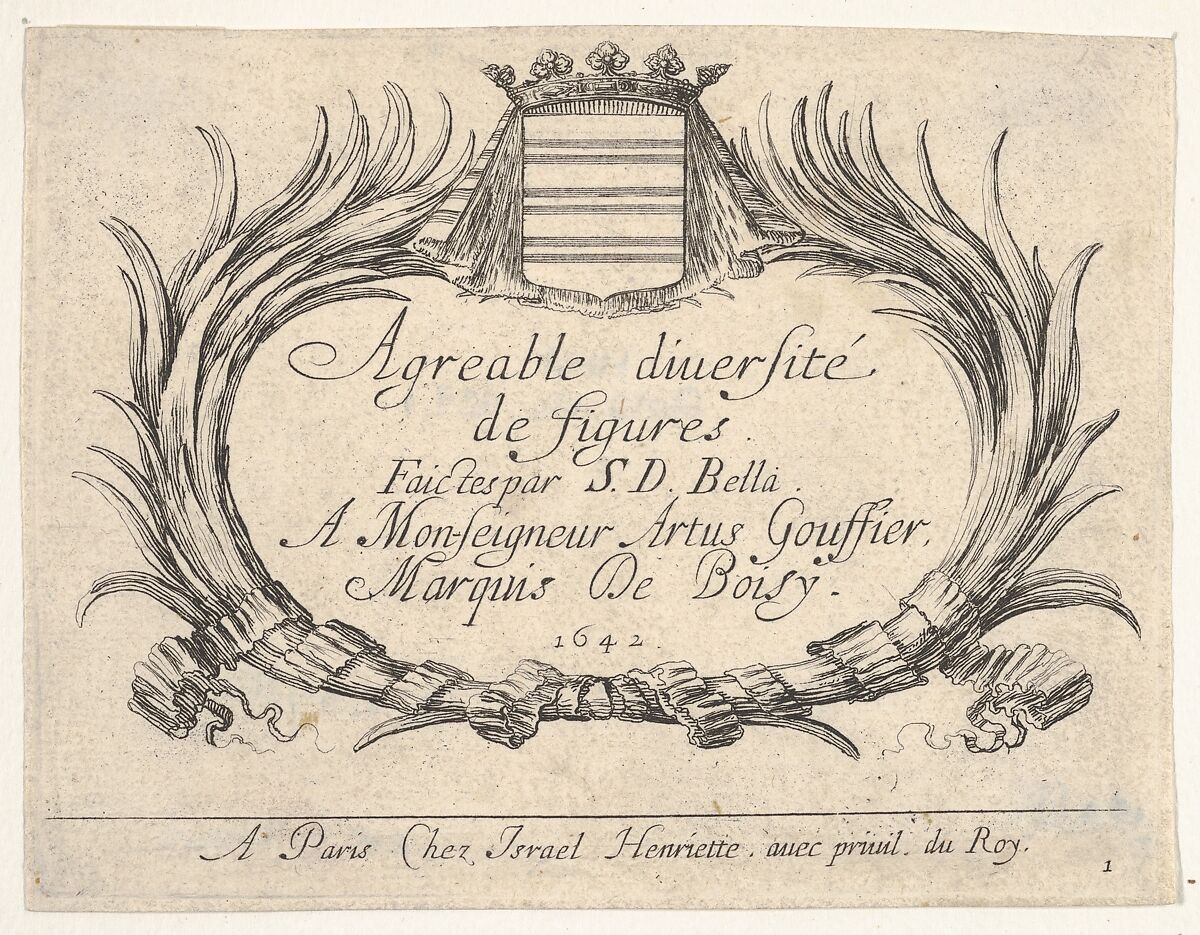 Agreable diuerſité
de figures.
Faictes par S. D. Bella.
A Monſeigneur Artus Gouffier,
Marquis De Boisy.
1642.
A Paris Chez Israel Henriette. auec priuil. du Roy.
1